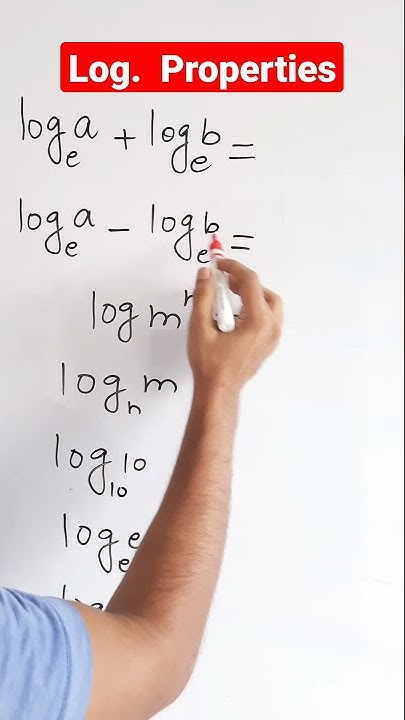 Log. Properties
logₑa + logₑb =
logₑa − logₑb =
log m
logₙm
log₁₀10
logₑe